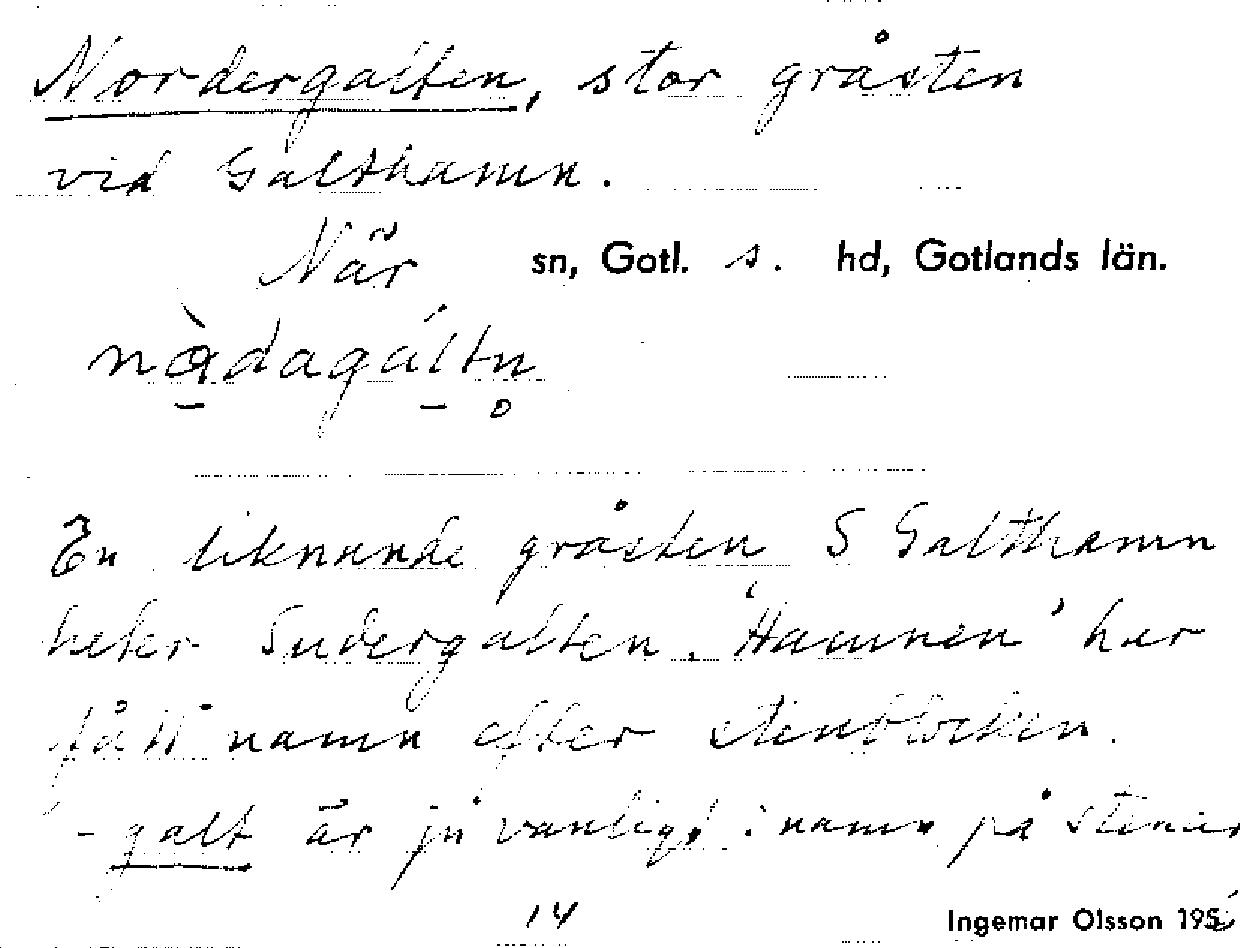 Nordergalten, stor gråsten
vid Galthamn.
När sn, Gotl. s. hd, Gotlands län.
nàdagáltn
En liknande gråsten S Galthamn
heter Sudergalten. 'Hamnen' har
fått namn efter stenblocken.
-galt är ju vanligt i namn på stenar
14
Ingemar Olsson 195